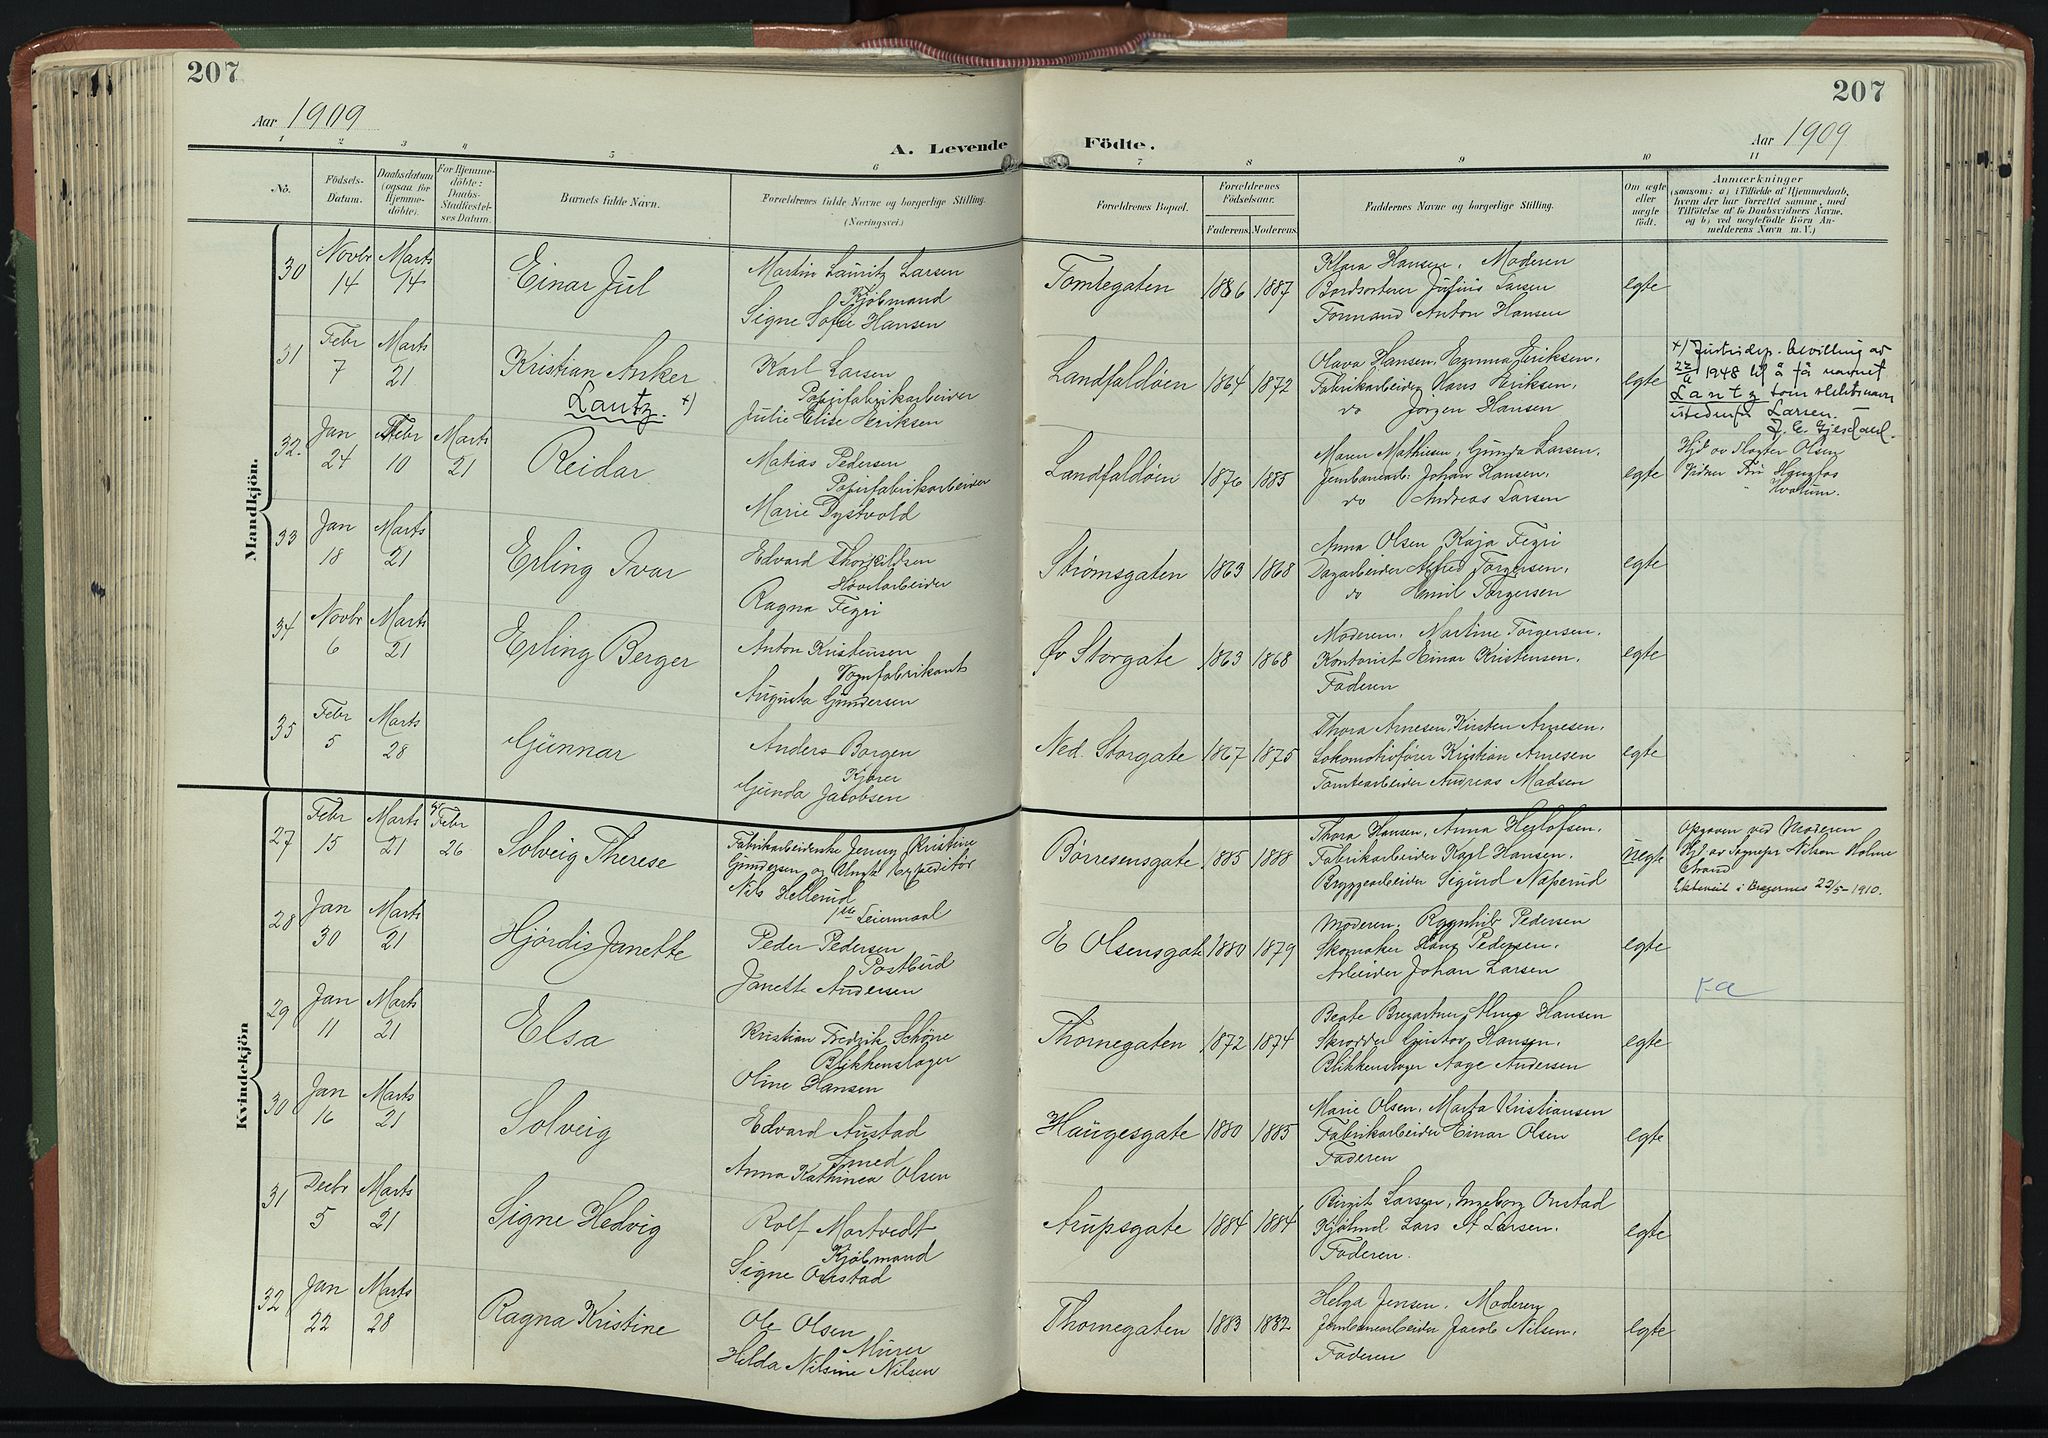 207
207
Aar 1909
Aar 1909
A. Levende
Födte.
1 2 3 4 5 6
7 8 9 10 11
No.
Födsels-
Datum.
Daabsdatum
(ogsaa for
Hjemme-
döbte).
For Hjemme-
döbte:
Daabs-
Stadfæstel-
ses Datum.
Barnets fulde Navn.
Forældrenes fulde Navne og borgerlige Stilling.
(Næringsvei.)
Forældrenes Bopæl.
Forældrenes
Födselsaar.
Faderens.
Moderens.
Faddernes Navne og borgerlige Stilling.
Om ægte
eller
uægte
født.
Anmærkninger
(saasom: a) i Tilfælde af Hjemmedaab,
hvem der har forrettet samme, med
Tilföielse af to Daabsvidners Navne,
og b) ved uægtefödte Börn An-
melderens Navn m. V.)
Mandkjön.
30
Novbr
14
Marts
14
Einar Jul
Martin Lauritz Larsen
Kjøbmand
Signe Sofie Hansen
Tomtegaten
1886
1887
Klara Hansen. Moderen
Bordsorterer Julius Larsen
Formand Anton Hansen
egte
31
Febr
7
Marts
21
Kristian Anker
Lantz. x)
Karl Larsen
Papirfabrikarbeider
Julie Elise Eriksen
Landfaldöen
1864
1872
Olava Hansen. Emma Eriksen.
Fabrikarbeider Hans Eriksen.
do Jörgen Hansen
egte
x) Justisdep. bevilling av
1948 til å få navnet
Lantz som slektsnavn
istedenfor Larsen.
32.
Jan
24
Febr
10
Marts
21
Reidar
Matias Pedersen
Papirfabrikarbeider
Marie Dystvold
Landfaldöen
1876
1885
Maren Mathiesen, Gunda Larsen.
Jernbanearb: Johan Hansen.
do Andreas Larsen
egte
Hjd av Slagter Olsen
33
Jan
18
Marts
21
Erling Ivar
Edvard Thorkildsen
Høvelarbeider
Ragna Fegri
Strömsgaten
1863
1868
Anna Olsen Kaja Fegri
Dagarbeider Alfred Torgersen.
do Emil Torgersen
egte
34
Novbr
6
Marts
21
Erling Berger
Anton Kristensen
Vognfabrikant
Augusta Gundersen
Øv Storgate
1863
1868
Moderen. Martine Torgersen.
Kontorist Einar Kristensen.
Faderen
egte
35
Febr
5
Marts
28
Gunnar
Anders Borgen
Kjører
Gunda Jacobsen
Ned. Storgate
1867
1875
Thora Arnesen. Kirsten Arnesen.
Lokomotivfører Kristian Arnesen
Tomtearbeider Andreas Madsen
egte
Kvindekjön
27
Febr
15
Marts
21
Febr
26
Solveig Therese
Fabrikarbeiderske Jenny Kristine
Gundersen og Ungk Expeditör
Nils Hellerud
1ste Leiermaal
Börresensgate
1885
1888
Thora Hansen, Anna Herlofsen.
Fabrikarbeider Karl Hansen.
Bryggearbeider Sigurd Næperud
uegte
Opgaven ved Moderen
Hjd av Sognepr Nilsen Holme
Strand
Ekteviet i Bragernes 22/5-1910.
28
Jan
30
Marts
21
Hjördis Janette
Peder Pedersen
Postbud
Janette Andersen
E Olsensgate
1880
1879
Moderen. Ragnhild Pedersen
Skomaker Hans Pedersen.
Arbeider Johan Larsen
egte
29
Jan
11
Marts
21
Elsa
Kristian Fredrik Schöne
Blikkenslager
Oline Hansen
Thornegaten
1872
1874
Beate Bregartner, Alma Hansen
Skredder Gustav Hansen.
Blikkenslager Aage Andersen
egte
30
Jan
16
Marts
21
Solveig
Edvard Austad
Smed
Anna Kathinca Olsen
Haugesgate
1880
1885
Marie Olsen. Marta Kristiansen
Fabrikarbeider Einar Olsen
Faderen
egte
31
Decbr
5
Marts
21
Signe Hedvig
Rolf Mortvedt
Kjöbmand
Signe Onstad
Arupsgate
1884
1884
Birgit Larsen, Ingeborg Onstad
Kjöbmd. Lars A Larsen.
Faderen.
egte
32
Jan
22
Marts
28
Ragna Kristine
Ole Olsen
Murer
Hilda Nilsine Nilsen
Thornegaten
1883
1882
Helga Jensen. Moderen
Jernbanearbeider Jacob Nilsen.
Faderen
egte